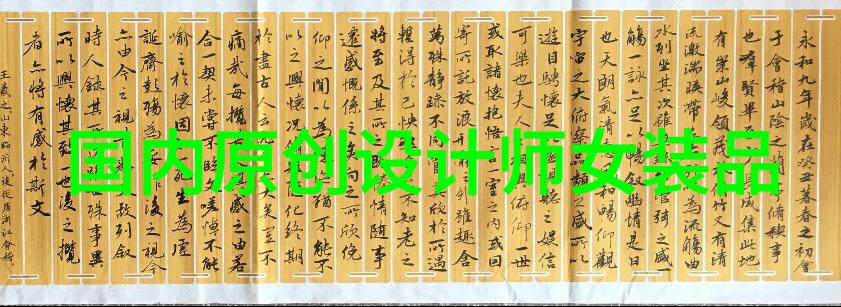 国内原创设计师女装品
永和九年歲在癸丑暮春之初會
于會稽山陰之蘭亭脩稧事
也群賢畢至少長咸集此地
有崇山峻領茂林脩竹又有清
流激湍暎帶左右為流觴曲
水列坐其次雖無管弦之盛一
觴一詠亦足以暢叙幽情是日
也天朗氣清惠風和暢仰觀
宇宙之大俯察品類之盛所以
遊目騁懷足以極視聽之娛信
可樂也夫人之相與俯仰一世
或取諸懷抱悟言一室之內或因
寄所託放浪形骸之外雖趣舍
萬殊靜躁不同當其欣於所遇
暫得於己快然自足不知老之
將至及其所之既惓情隨事
遷感慨係之矣向之所欣俛
仰之間以為陳迹猶不能不
以之興懷況脩短隨化終期
於盡古人云死生亦大矣豈不
痛哉每攬昔人興感之由若
合一契未嘗不臨文嗟悼不能
喻之於懷固知一死生為虛
誕齊彭殤為妄作後之視今
亦由今之視昔悲夫故列叙
時人錄其所述雖世殊事異
所以興懷其致一也後之攬
者亦將有感於斯文
王羲之山東臨沂人後徙居浙江會稽